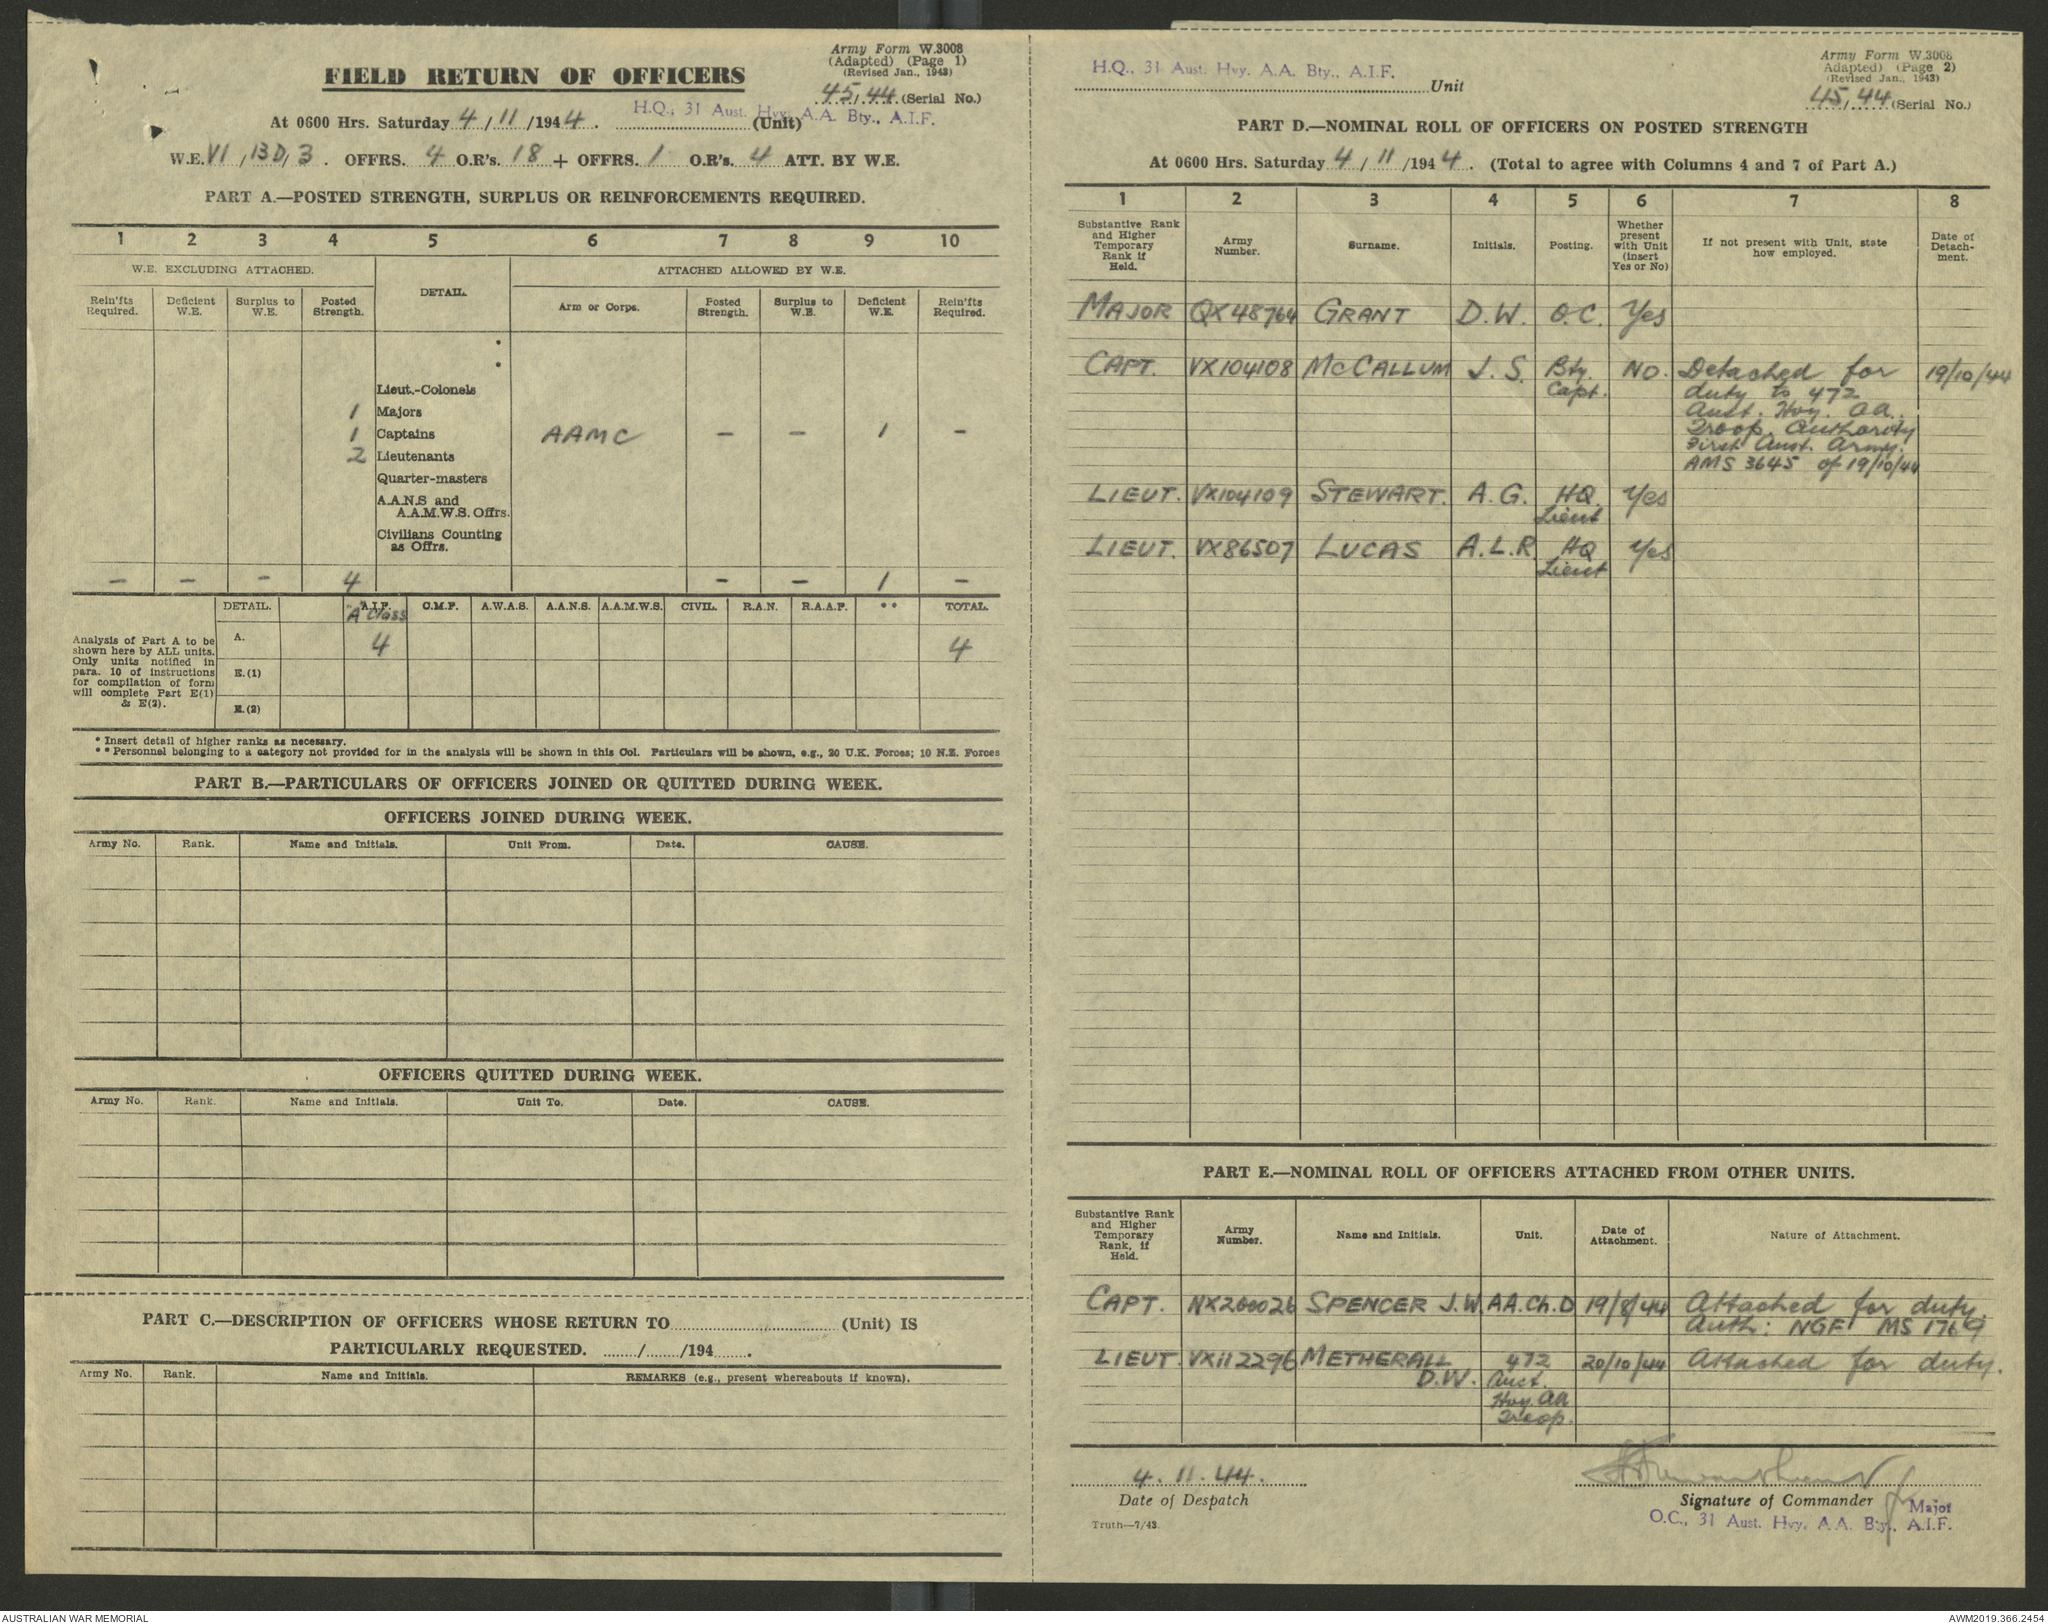 Army Form W.3008
(Adapted) (Page 1)
(Revised Jan., 1943)
FIELD RETURN OF OFFICERS
45/44 (Serial No.)
At 0600 Hrs. Saturday 4/11/1944. H.Q., 31 Aust. Hvy. A.A. Bty., A.I.F. (Unit)
W.E. VI, 13D, 3. OFFRS. 4 O.R's. 18 + OFFRS. 1 O.R's. 4 ATT. BY W.E.
PART A.—POSTED STRENGTH, SURPLUS OR REINFORCEMENTS REQUIRED.
1 2 3 4 5 6 7 8 9 10
W.E. EXCLUDING ATTACHED. DETAIL. ATTACHED ALLOWED BY W.E.
Rein'fts Required. Deficient W.E. Surplus to W.E. Posted Strength. Arm or Corps. Posted Strength. Surplus to W.E. Deficient W.E. Rein'fts Required.
*
*
Lieut.-Colonels
1 Majors
1 Captains AAMC — — 1 —
2 Lieutenants
Quarter-masters
A.A.N.S and
A.A.M.W.S. Offrs.
Civilians Counting
as Offrs.
— — — 4 — — 1 —
DETAIL. A.I.F. C.M.F. A.W.A.S. A.A.N.S. A.A.M.W.S. CIVIL. R.A.N. R.A.A.F. ** TOTAL.
"A" Class
Analysis of Part A to be
shown here by ALL units.
Only units notified in
para. 10 of instructions
for compilation of form
will complete Part E(1)
& E(2).
A. 4 4
E.(1)
E.(2)
* Insert detail of higher ranks as necessary.
** Personnel belonging to a category not provided for in the analysis will be shown in this Col. Particulars will be shown, e.g., 20 U.K. Forces; 10 N.Z. Forces
PART B.—PARTICULARS OF OFFICERS JOINED OR QUITTED DURING WEEK.
OFFICERS JOINED DURING WEEK.
Army No. Rank. Name and Initials. Unit From. Date. CAUSE.
OFFICERS QUITTED DURING WEEK.
Army No. Rank. Name and Initials. Unit To. Date. CAUSE.
PART C.—DESCRIPTION OF OFFICERS WHOSE RETURN TO (Unit) IS
PARTICULARLY REQUESTED. / /194 .
Army No. Rank. Name and Initials. REMARKS (e.g., present whereabouts if known).
Army Form W.3008
Adapted) (Page 2)
(Revised Jan., 1943)
H.Q., 31 Aust. Hvy. A.A. Bty., A.I.F. Unit
45/44 (Serial No.)
PART D.—NOMINAL ROLL OF OFFICERS ON POSTED STRENGTH
At 0600 Hrs. Saturday 4/11/1944. (Total to agree with Columns 4 and 7 of Part A.)
1 2 3 4 5 6 7 8
Substantive Rank and Higher Temporary Rank if Held. Army Number. Surname. Initials. Posting. Whether present with Unit (insert Yes or No) If not present with Unit, state how employed. Date of Detach-ment.
MAJOR QX48764 GRANT D.W. O.C. Yes
CAPT. VX104108 McCALLUM J.S. Bty. Capt. NO. Detached for 19/10/44
duty to 472
Aust. Hvy. AA.
Troop. Authority
First Aust. Army.
AMS 3645 of 19/10/44
LIEUT. VX104109 STEWART. A.G. HQ. Lieut Yes
LIEUT. VX86507 LUCAS A.L.R HQ Lieut Yes
PART E.—NOMINAL ROLL OF OFFICERS ATTACHED FROM OTHER UNITS.
Substantive Rank and Higher Temporary Rank, if Held. Army Number. Name and Initials. Unit. Date of Attachment. Nature of Attachment.
CAPT. NX200026 SPENCER J.W. AA.Ch.D 19/8/44 Attached for duty.
Auth: NGF MS 1769
LIEUT. VX112296 METHERALL 472 20/10/44 Attached for duty.
D.W. Aust.
Hvy AA
Troop.
4.11.44.
Date of Despatch
Signature of Commander
Major
O.C., 31 Aust. Hvy. A.A. Bty., A.I.F.
Truth—7/43.
AUSTRALIAN WAR MEMORIAL
AWM2019.366.2454